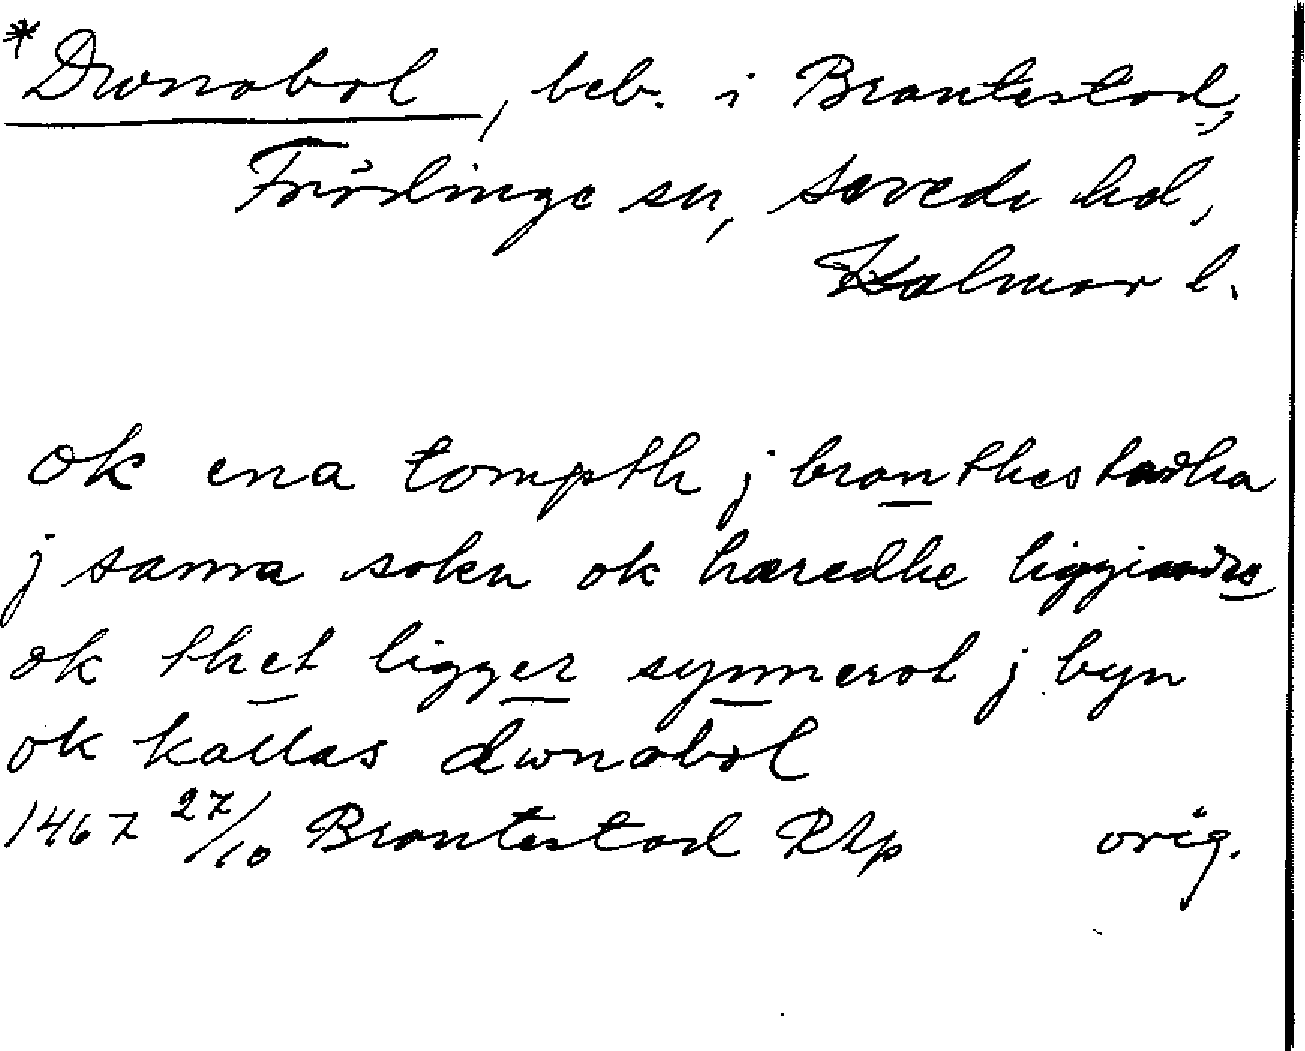 *Dwnabol, beb. i Brantestad,
Frödinge sn, Sevede hd,
Kalmar l.
ok ena tompth j branthestadha
j sama sokn ok hæredhe liggiandes
ok thet ligger synnerst j byn
ok kallas dwnabol
1467 27/10 Brantestad RAp orig.